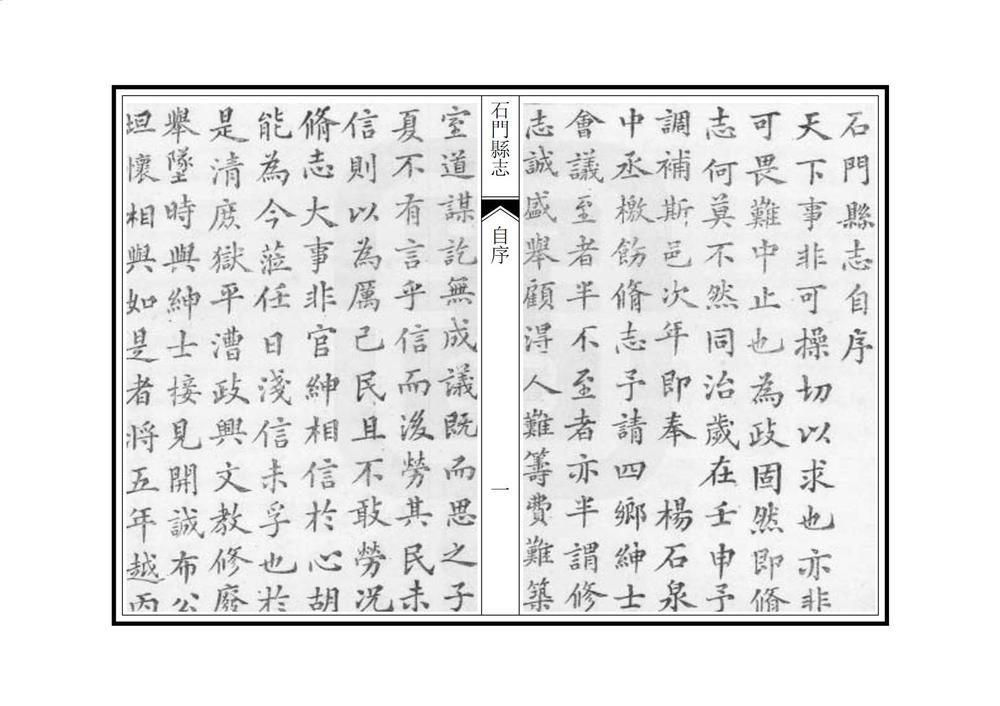 石門縣志自序
天下事非可操切以求也亦非
可畏難中止也為政固然即脩
志何莫不然同治歲在壬申予
調補斯邑次年即奉　楊石泉
中丞檄飭脩志予請四鄉紳士
會議至者半不至者亦半謂修
志誠盛舉顧得人難籌費難築
石門縣志
自序
一
室道謀訖無成議既而思之子
夏不有言乎信而後勞其民未
信則以為厲己民且不敢勞况
脩志大事非官紳相信於心胡
能為今蒞任日淺信未孚也於
是清庶獄平漕政興文教修廢
舉墜時與紳士接見開誠布公
坦懷相與如是者將五年越丙